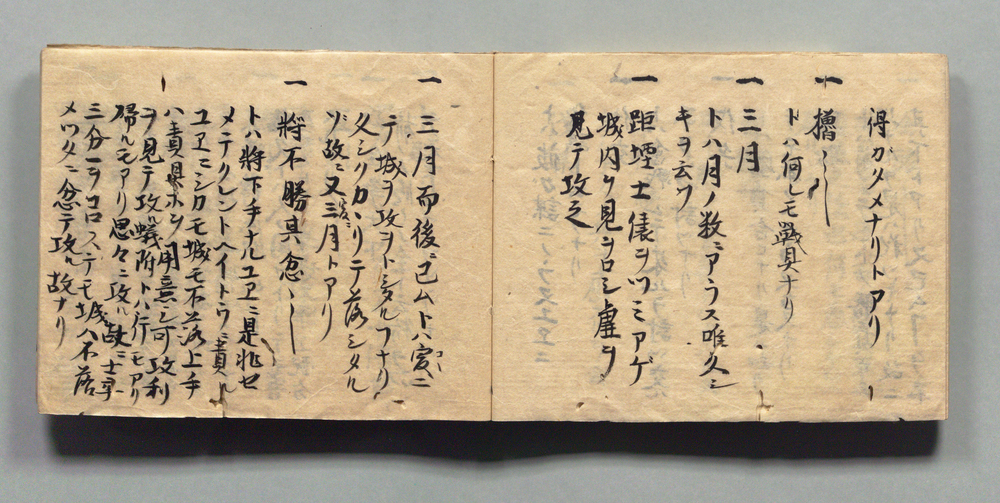 得ガタメナリトアリ
一 櫓〱
トハ何レモ戰具ナリ
一 三月
トハ月ノ数ニアラス唯久シ
キヲ云フ
一 距堙土俵ヲツミアゲ
城内ヲ見ヲロシ虚ヲ
見テ攻之
一 三月而後已ムトハ寔ニ
テ城ヲ攻ヲトシタルフナリ
久シクカヽリテ落シタル
ゾ故ニ又三月トアリ
一 將不勝其忿〱
トハ將下手ナルユヱニ是非セ
メテクレントヘイトウニ責ル
ユヱニシカモ城モ不落上手
ハ責具ホシ用意シ可攻利
ヲ見テ攻ル蟻附トハ行モアリ
帰ルモアリ思々ニ攻ル故ニ士卒
三分一ヲコロステモ城ハ不落
メツタニ忿テ攻ル故ナリ